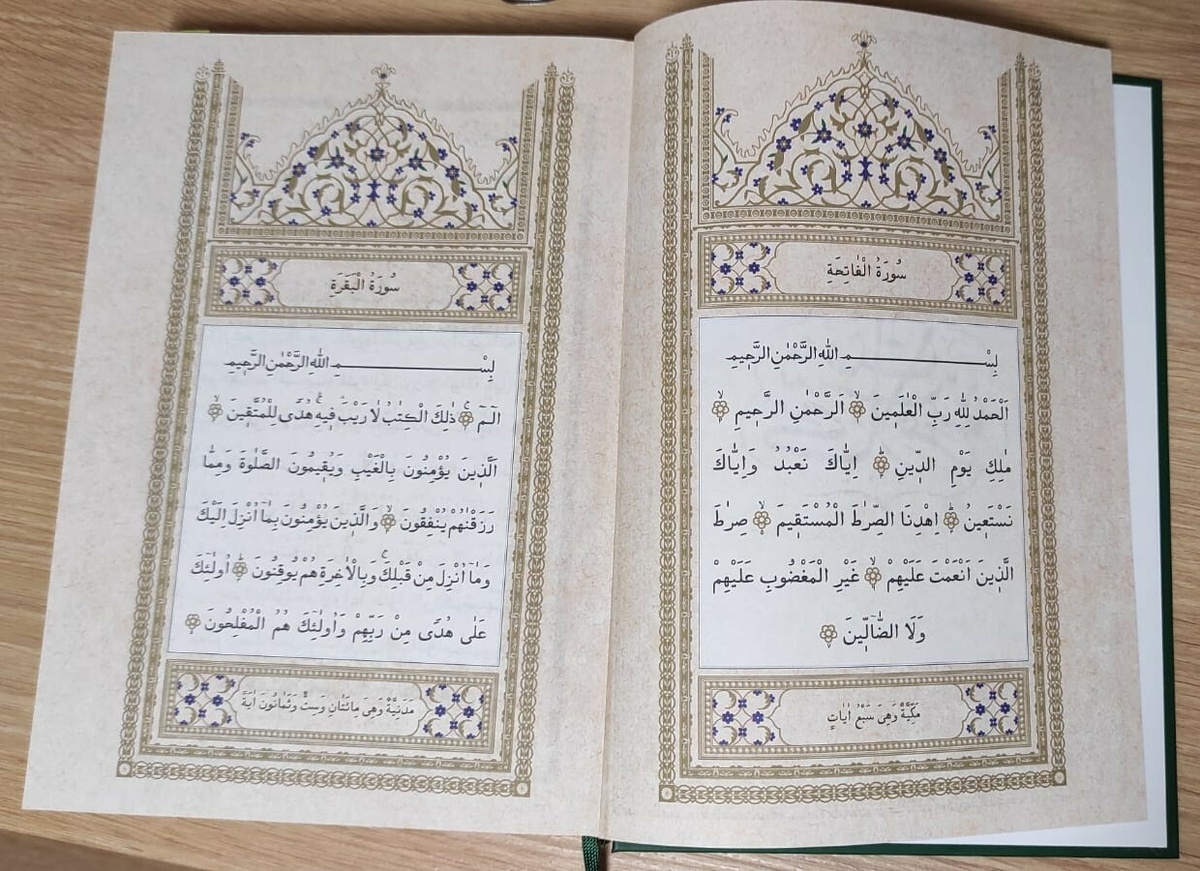 سُورَةُ الْفَاتِحَةِ
بِسْــــــــــــــــمِ اللّٰهِ الرَّحْمٰنِ الرَّحٖيمِ
اَلْحَمْدُ لِلّٰهِ رَبِّ الْعَالَمٖينَ ۙ اَلرَّحْمٰنِ الرَّحٖيمِ ۙ
مَالِكِ يَوْمِ الدّٖينِ ؕ اِيَّاكَ نَعْبُدُ وَاِيَّاكَ
نَسْتَعٖينُ ؕ اِهْدِنَا الصِّرَاطَ الْمُسْتَقٖيمَ ۙ صِرَاطَ
الَّذٖينَ اَنْعَمْتَ عَلَيْهِمْ ۙ غَيْرِ الْمَغْضُوبِ عَلَيْهِمْ
وَلَا الضَّٓالّٖينَ
مَكِّيَّةٌ وَهِىَ سَبْعُ اٰيَاتٍ
سُورَةُ الْبَقَرَةِ
بِسْــــــــــــــــمِ اللّٰهِ الرَّحْمٰنِ الرَّحٖيمِ
الٓمٓ ۚ ذٰلِكَ الْكِتَابُ لَا رَيْبَ ۛ فٖيهِ ۛ هُدًى لِلْمُتَّقٖينَ ۙ
اَلَّذٖينَ يُؤْمِنُونَ بِالْغَيْبِ وَيُقٖيمُونَ الصَّلٰوةَ وَمِمَّا
رَزَقْنَاهُمْ يُنْفِقُونَ ۙ وَالَّذٖينَ يُؤْمِنُونَ بِمَٓا اُنْزِلَ اِلَيْكَ
وَمَٓا اُنْزِلَ مِنْ قَبْلِكَ ۚ وَبِالْاٰخِرَةِ هُمْ يُوقِنُونَ ؕ اُولٰٓئِكَ
عَلٰى هُدًى مِنْ رَبِّهِمْ وَاُولٰٓئِكَ هُمُ الْمُفْلِحُونَ
مَدَنِيَّةٌ وَهِىَ مِائَتَانِ وَسِتٌّ وَثَمَانُونَ اٰيَةً